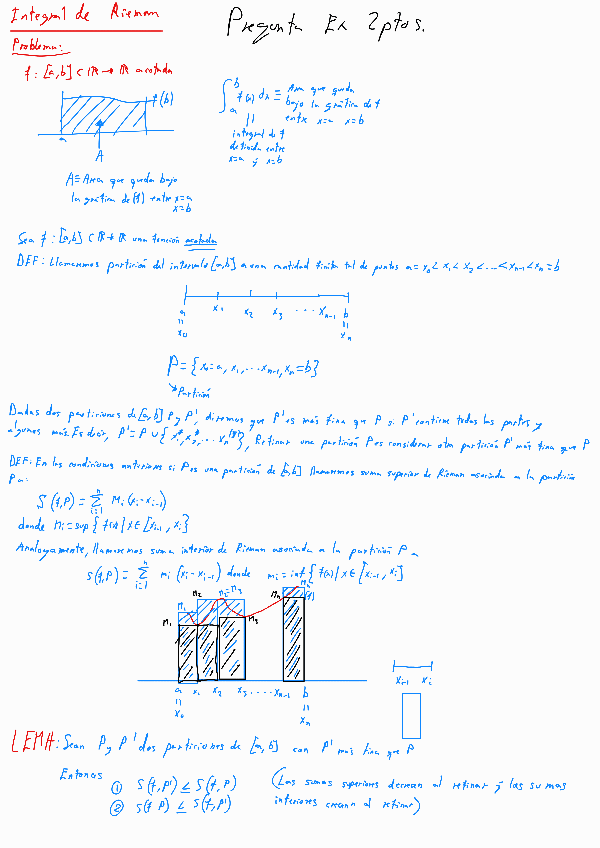 Integral de Rieman
Pregunta Ex 2ptos.
Problema:
f: [a,b] ⊂ ℝ → ℝ acotada
f(b)
a
A
A ≡ Area que queda bajo
la gráfica de (f) entre x=a
x=b
∫_a^b f(x) dx ≡ Area que queda
bajo la gráfica de f
entre x=a x=b
||
integral de f
definida entre
x=a y x=b
Sea f: [a,b] ⊂ ℝ → ℝ una función acotada
DEF: Llamaremos partición del intervalo [a,b] a una cantidad finita tal de puntos a = x₀ < x₁ < x₂ < ... < xₙ₋₁ < xₙ = b
a x₁ x₂ x₃ ... xₙ₋₁ b
|| ||
x₀ xₙ
P = {x₀=a, x₁, ... xₙ₋₁, xₙ=b}
Partición
Dadas dos particiones de [a,b] P y P', diremos que P' es más fina que P si P' contiene todos los partes y
algunos más. Es decir, P' = P ∪ {x₁*, x₂*, ... }, Refinar una partición P es considerar otra partición P' más fina que P
DEF: En las condiciones anteriores si P es una partición de [a,b] llamaremos suma superior de Rieman asociada a la partición
P a:
S(f,P) = Σ_{i=1}^n Mi (xi - xi-1)
donde Mi = sup {f(x) | x ∈ [xi-1, xi]
Analogamente, llamaremos suma inferior de Rieman asociada a la partición P a
s(f,P) = Σ_{i=1}^n mi (xi - xi-1) donde mi = inf {f(x) | x ∈ [xi-1, xi]
M₁ M₂ M₃ Mₙ
m₁ m₃ mₙ
a x₁ x₂ x₃ ... xₙ₋₁ b
|| ||
x₀ xₙ
xi-1 xi
LEMA: Sean P y P' dos particiones de [a,b] con P' más fina que P
Entonces
① S(f,P') ≤ S(f,P)
② s(f,P) ≤ s(f,P')
(Las sumas superiores decrecen al refinar y las sumas
inferiores crecen al refinar)